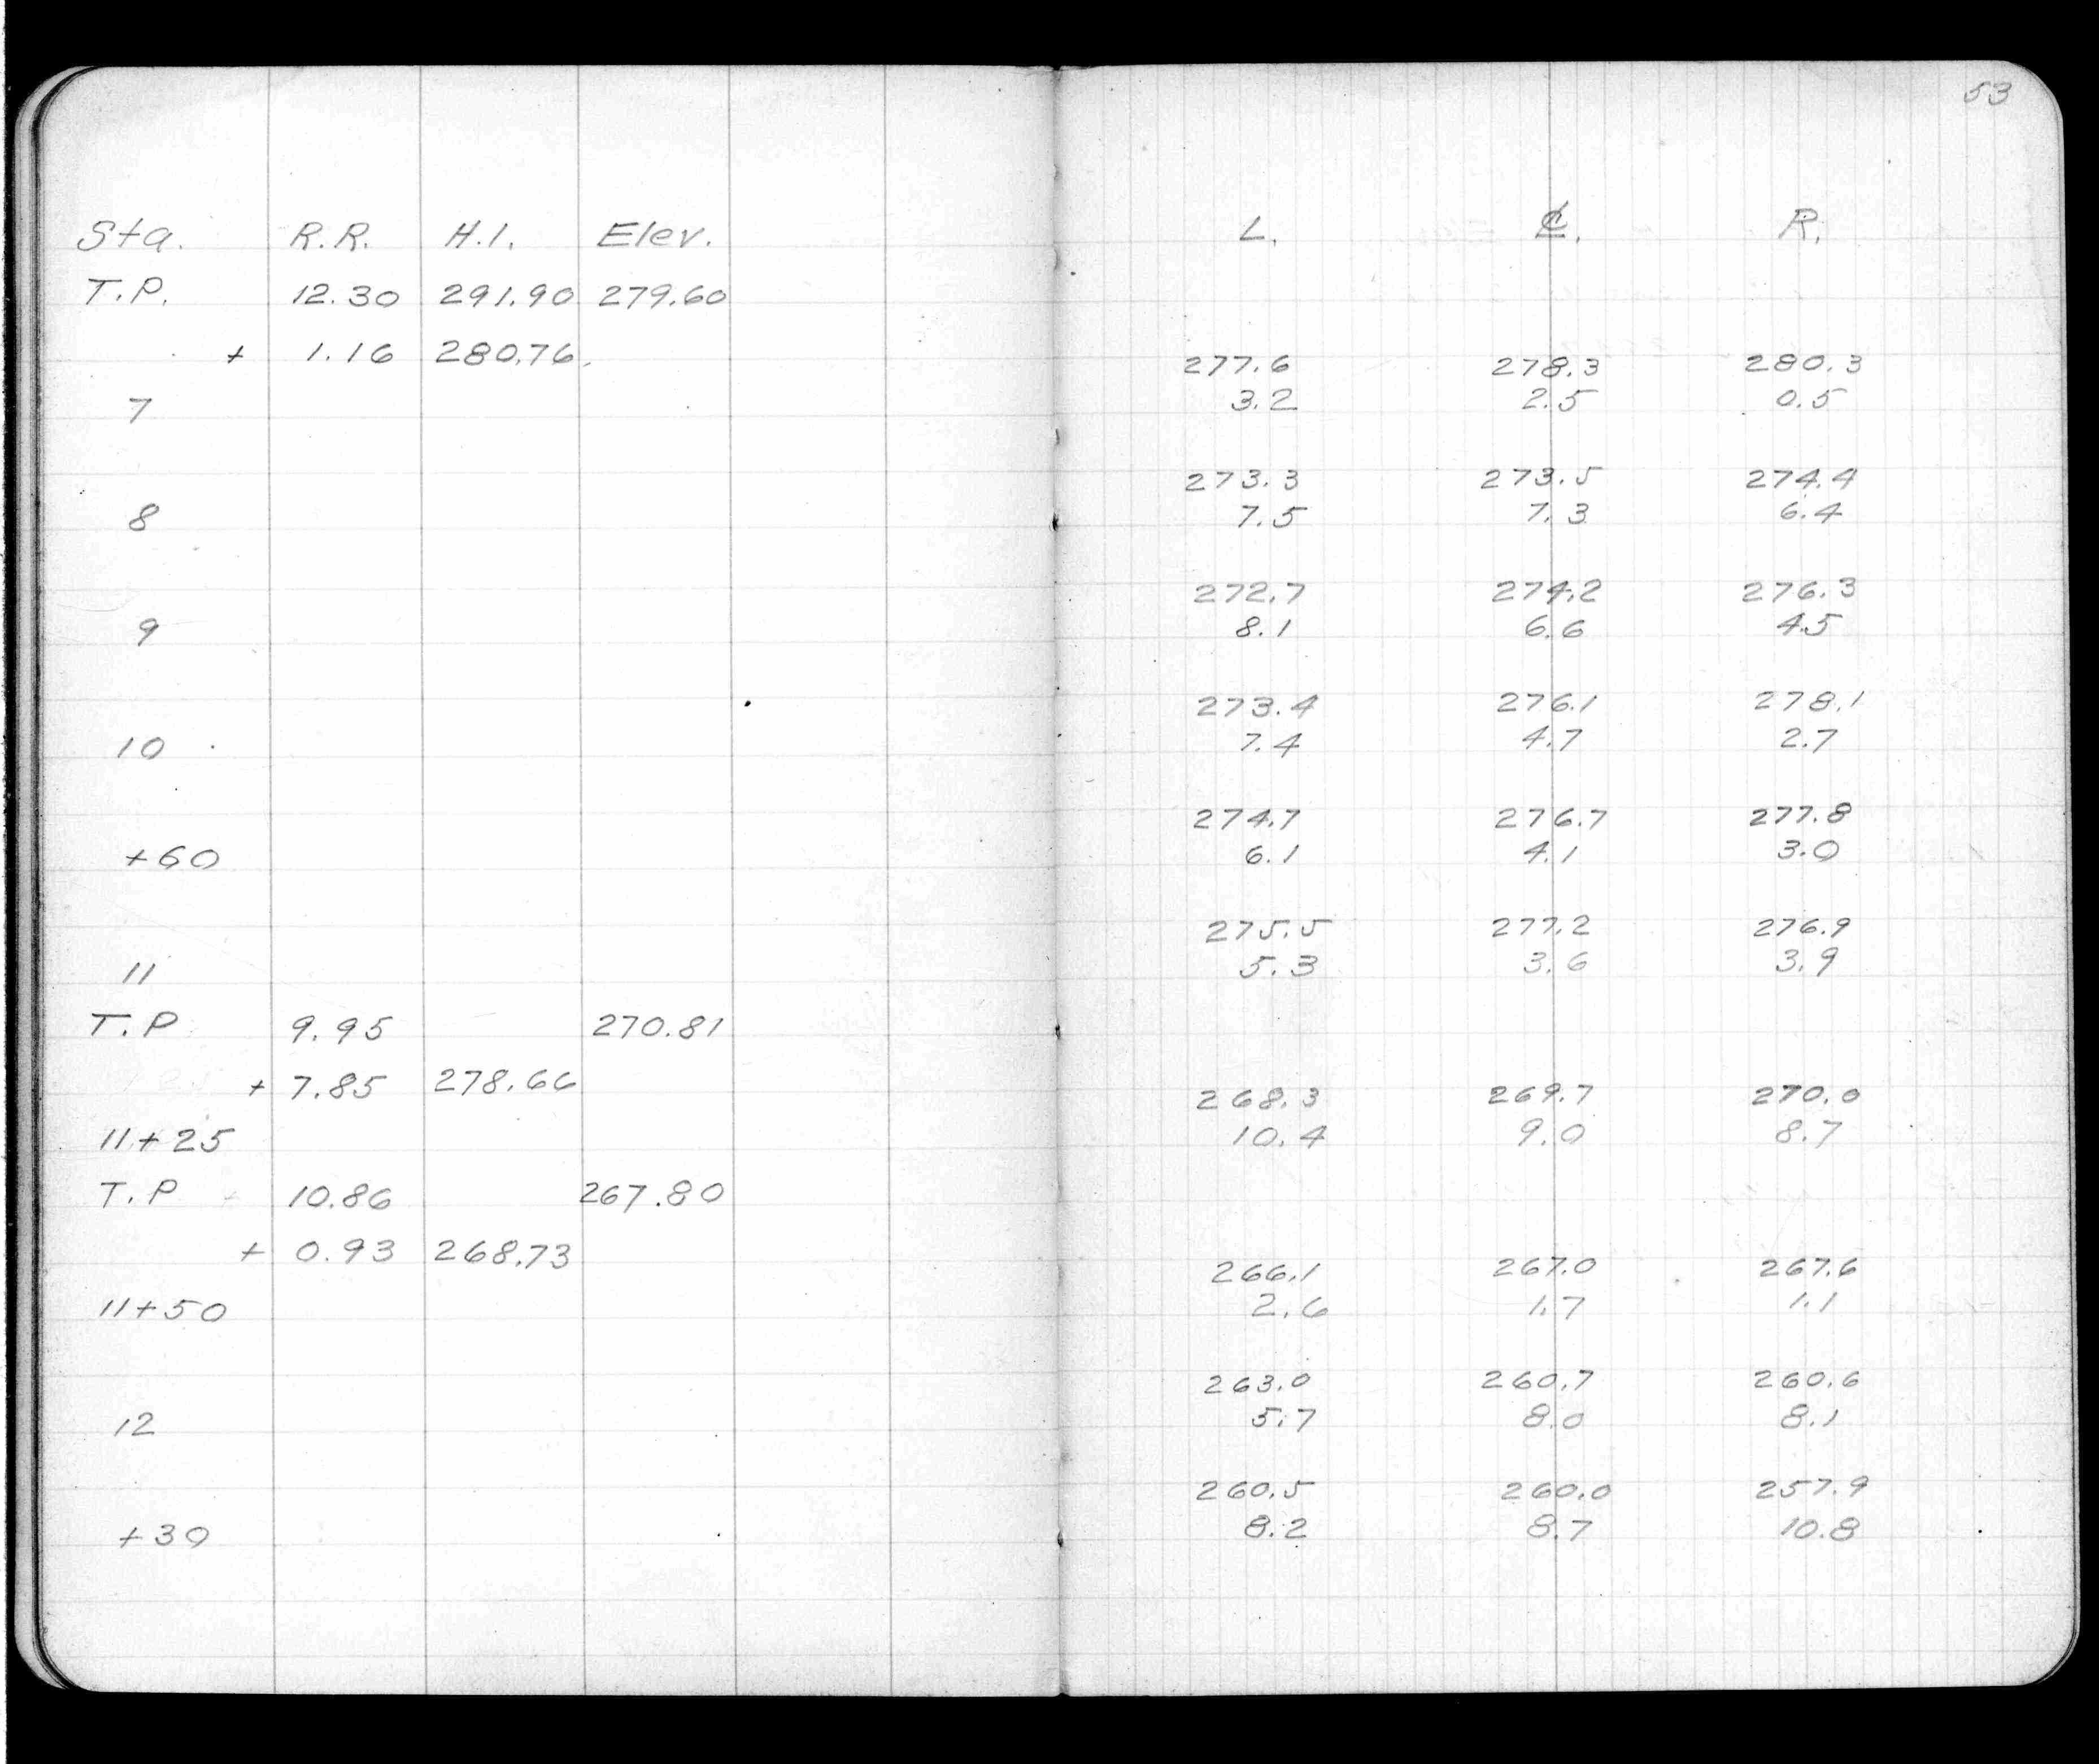 53
Sta. R.R. H.I. Elev. L. ℄. R.
T.P. 12.30 291.90 279.60
+ 1.16 280.76. 277.6 278.3 280.3
7 3.2 2.5 0.5
273.3 273.5 274.4
8 7.5 7.3 6.4
272.7 274.2 276.3
9 8.1 6.6 4.5
273.4 276.1 278.1
10 7.4 4.7 2.7
274.7 276.7 277.8
+60 6.1 4.1 3.0
275.5 277.2 276.9
11 5.3 3.6 3.9
T.P 9.95 270.81
+ 7.85 278.66 268.3 269.7 270.0
11+25 10.4 9.0 8.7
T.P 10.86 267.80
+ 0.93 268.73 266.1 267.0 267.6
11+50 2.6 1.7 1.1
263.0 260.7 260.6
12 5.7 8.0 8.1
260.5 260.0 257.9
+30 8.2 8.7 10.8